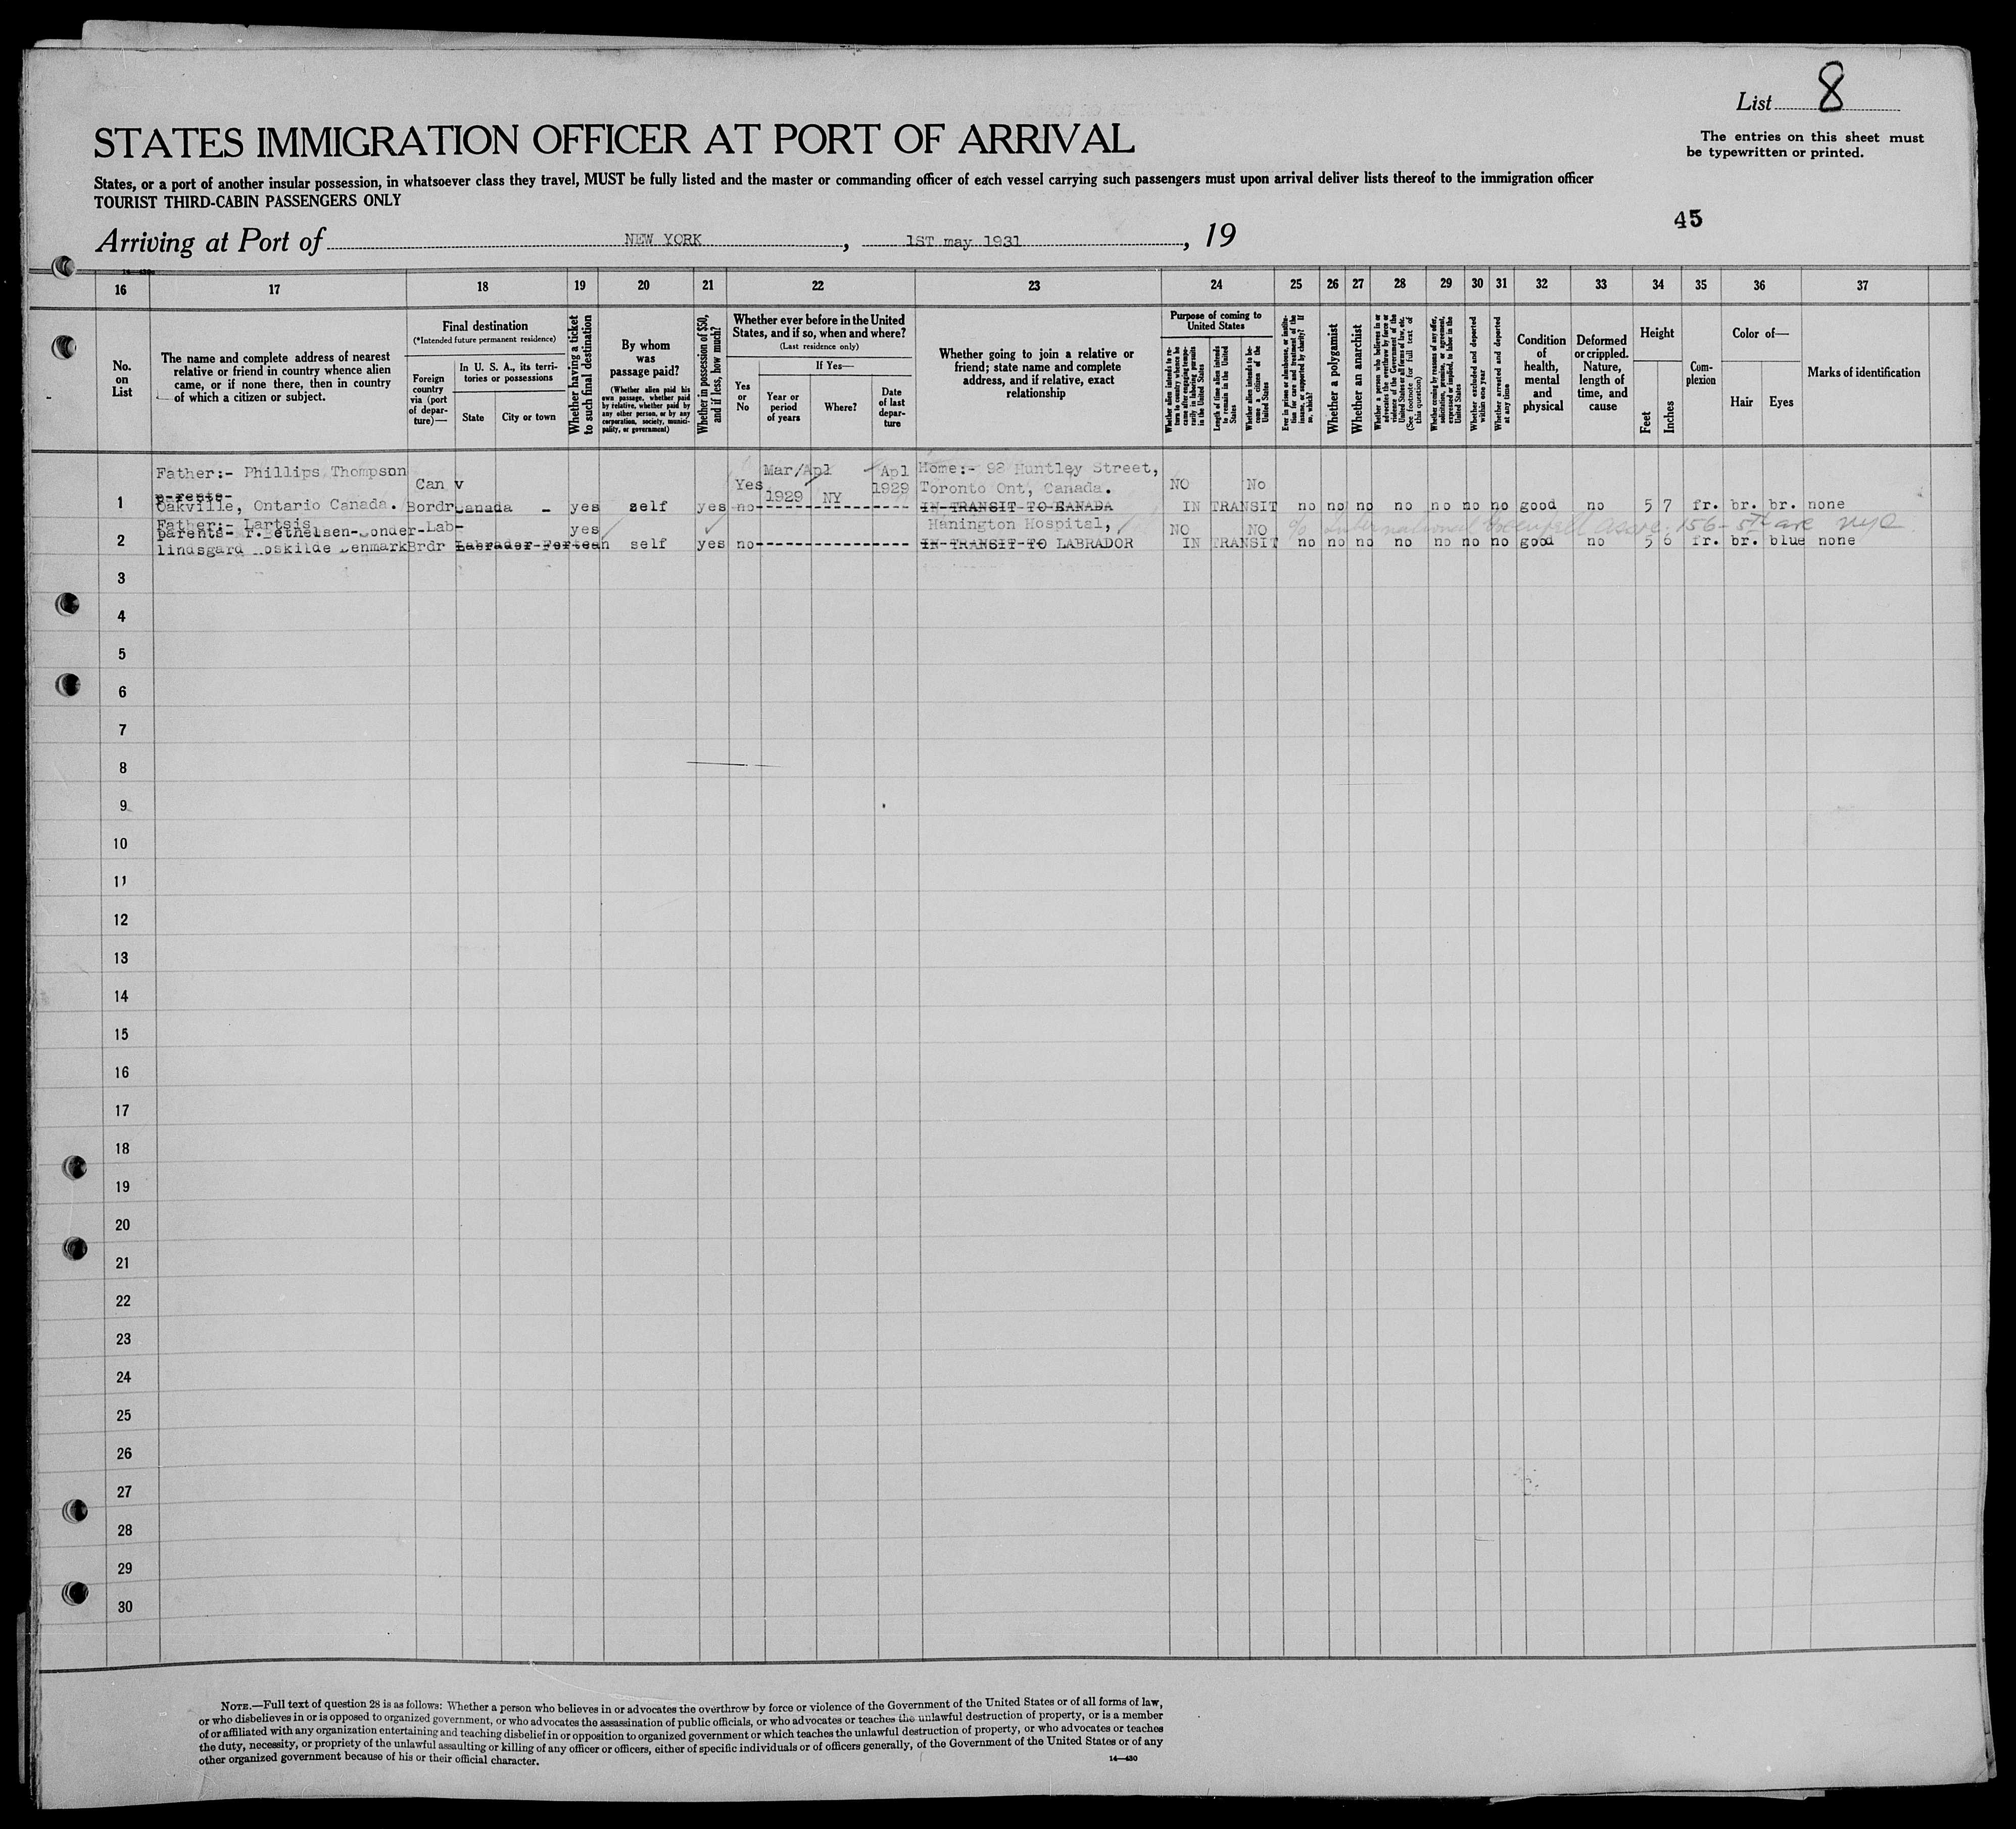 List 8
The entries on this sheet must
be typewritten or printed.
STATES IMMIGRATION OFFICER AT PORT OF ARRIVAL
States, or a port of another insular possession, in whatsoever class they travel, MUST be fully listed and the master or commanding officer of each vessel carrying such passengers must upon arrival deliver lists thereof to the immigration officer
TOURIST THIRD-CABIN PASSENGERS ONLY
45
Arriving at Port of NEW YORK, 1ST may 1931, 19
16 17 18 19 20 21 22 23 24 25 26 27 28 29 30 31 32 33 34 35 36 37
No.
on
List
The name and complete address of nearest
relative or friend in country whence alien
came, or if none there, then in country
of which a citizen or subject.
Final destination
(*Intended future permanent residence)
Foreign
country
via (port
of depar-
ture)—
In U. S. A., its terri-
tories or possessions
State
City or town
Whether having a ticket
to such final destination
By whom
was
passage paid?
(Whether alien paid his
own passage, whether paid
by relative, whether paid by
any other person, or by any
corporation, society, munici-
pality, or government)
Whether in possession of $50,
and if less, how much?
Whether ever before in the United
States, and if so, when and where?
(Last residence only)
Yes
or
No
If Yes—
Year or
period
of years
Where?
Date
of last
depar-
ture
Whether going to join a relative or
friend; state name and complete
address, and if relative, exact
relationship
Purpose of coming to
United States
Whether alien intends to re-
turn to country whence he
came after engaging tempo-
rarily in laboring pursuits
in the United States
Length of time alien intends
to remain in the United
States
Whether alien intends to be-
come a citizen of the
United States
Ever in prison or almshouse, or institu-
tion for care and treatment of the
insane, or supported by charity? If
so, which?
Whether a polygamist
Whether an anarchist
Whether a person who believes in or
advocates the overthrow by force or
violence of the Government of the
United States or all forms of law, etc.
(See footnote for full text of
this question)
Whether coming by reasons of any offer,
solicitation, promise, or agreement,
expressed or implied, to labor in the
United States
Whether excluded and deported
within one year
Whether arrested and deported
at any time
Condition
of
health,
mental
and
physical
Deformed
or crippled.
Nature,
length of
time, and
cause
Height
Feet
Inches
Com-
plexion
Color of—
Hair
Eyes
Marks of identification
Father:- Phillips Thompson Can v Mar/Apl Apl Home:- 98 Huntley Street,
Yes 1929 NY 1929 Toronto Ont, Canada. NO No
1 Oakville, Ontario Canada. Bordr Canada - yes self yes no IN TRANSIT TO CANADA IN TRANSIT no no no no no no no good no 5 7 fr. br. br. none
Father:- Lartsis Lab- yes Hanington Hospital, NO NO c/o International Grenfell Assoc. 156-5th ave nyc
2 parents-
lindsgard Roskilde Denmark Brdr Labrador self yes no IN TRANSIT TO LABRADOR IN TRANSIT no no no no no no no good no 5 6 fr. br. blue none
3
4
5
6
7
8
9
10
11
12
13
14
15
16
17
18
19
20
21
22
23
24
25
26
27
28
29
30
NOTE.—Full text of question 28 is as follows: Whether a person who believes in or advocates the overthrow by force or violence of the Government of the United States or of all forms of law,
or who disbelieves in or is opposed to organized government, or who advocates the assassination of public officials, or who advocates or teaches the unlawful destruction of property, or is a member
of or affiliated with any organization entertaining and teaching disbelief in or opposition to organized government or which teaches the unlawful destruction of property, or who advocates or teaches
the duty, necessity, or propriety of the unlawful assaulting or killing of any officer or officers, either of specific individuals or of officers generally, of the Government of the United States or of any
other organized government because of his or their official character.
14—430